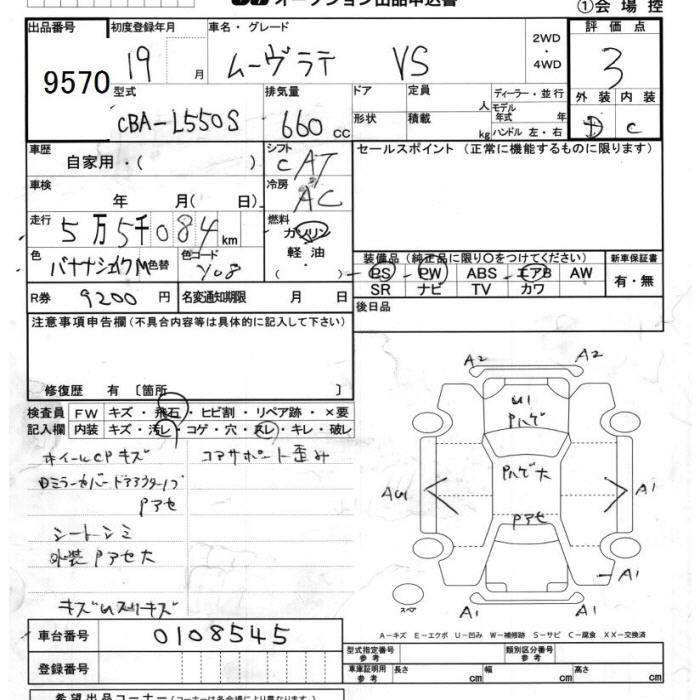 オークション出品申込書
①会場控
出品番号 初度登録年月 車名・グレード 2WD ・4WD 評価点
9570 19 月 ムーヴラテ VS 3
型式 排気量 ドア 定員 人 ディーラー・並行 外装 内装
CBA-L550S 660 cc 形状 積載 kg モデル年式 年 ハンドル 左・右 D C
車歴 自家用・( ) シフト CAT セールスポイント (正常に機能するものに限ります)
車検 年 月( 日) 冷房 AC
走行 5万5千084km 燃料 ガソリン 軽油 ( )
色 色替 色コード Y08 装備品(純正品に限り○をつけてください) 新車保証書
PS PW ABS エアB AW 有・無
SR ナビ TV カワ
R券 9200円 名変通知期限 月 日 後日品
注意事項申告欄(不具合内容等は具体的に記入して下さい)
修復歴 有 〔箇所 〕
検査員 FW キズ・飛石・ヒビ割・リペア跡・×要
記入欄 内装 キズ・汚レ・コゲ・穴・スレ・キレ・破レ
ホイールCPキズ コアサポート歪み
Pアセ
シートシミ
外装Pアセ大
A2 A2
U1
Pハゲ
Pハゲ大
A1
Pアセ
A1
スペア A1 A1
A-キズ E-エクボ U-凹み W-補修跡 S-サビ C-腐食 XX-交換済
車台番号 0108545
登録番号
型式指定番号 参考 類別区分番号 参考
車庫証明用 参考 長さ cm 幅 cm 高さ cm
希望出品コーナー(コーナーは各会場により異なります)